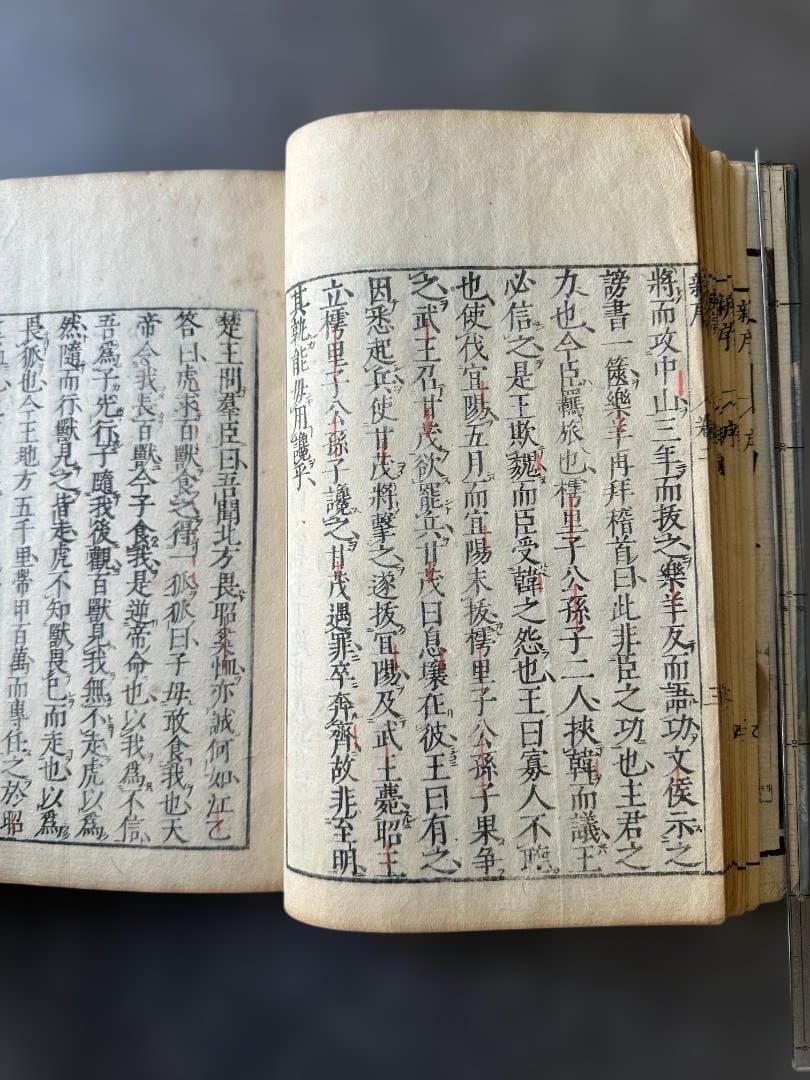 將而攻中山三年而拔之樂羊反而語功文侯示之
謗書一篋樂羊再拜稽首曰此非臣之功也主君之
力也今臣羈旅也樗里子公孫子二人挾韓而議王
必信之是王欺魏而臣受韓之怨也王曰寡人不聽
也使伐宜陽五月而宜陽未拔樗里子公孫子果爭
之武王召甘茂欲罷兵甘茂曰息壤在彼王曰有之
因悉起兵使甘茂將擊之遂拔宜陽及武王薨昭王
立樗里子公孫子讒之甘茂遇罪卒奔齊故非至明
其孰能毋用讒乎
楚王問羣臣曰吾聞北方畏昭奚恤亦誠何如江乙
答曰虎求百獸食之得一狐狐曰子毋敢食我也天
帝令我長百獸今子食我是逆帝命也以我爲不信
吾爲子先行子隨我後觀百獸見我無不走虎以爲
然隨而行獸見之皆走虎不知獸畏己而走也以爲
畏狐也今王地方五千里帶甲百萬而專任之於昭
新序
新序
新序
卷二